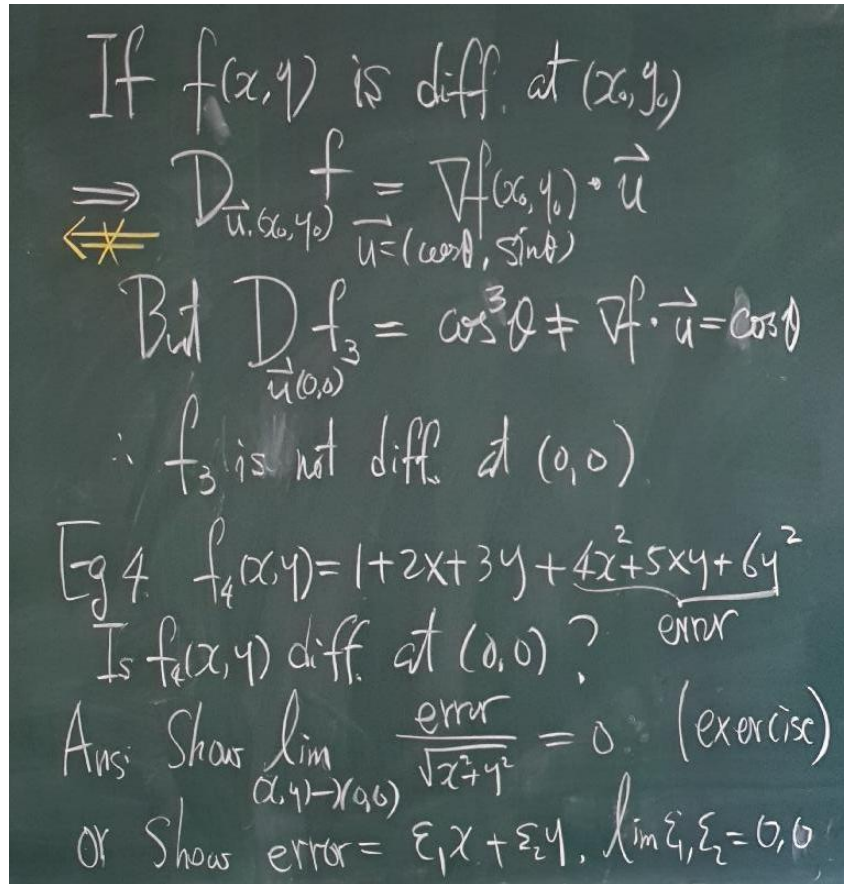 If f(x,y) is diff. at (x₀,y₀)
⟹ D_{u⃗,(x₀,y₀)} f = ∇f(x₀,y₀)·u⃗
u⃗=(cosθ, sinθ)
But D_{u⃗(0,0)} f₃ = cos³θ ≠ ∇f·u⃗=cosθ
∴ f₃ is not diff. at (0,0)
Eg 4. f₄(x,y)=1+2x+3y+4x²+5xy+6y²
error
Is f₄(x,y) diff. at (0,0)?
Ans: Show lim_{(x,y)→(0,0)} error/√(x²+y²) = 0. (exercise)
or Show error= ε₁x + ε₂y, lim ε₁,ε₂=0,0